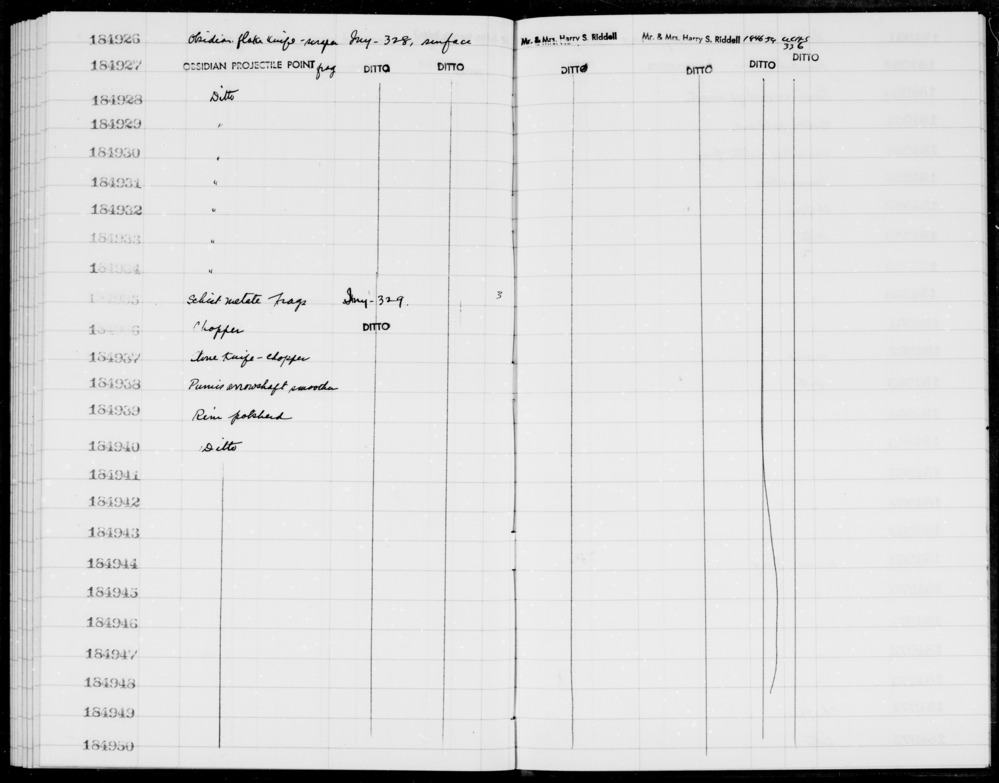 184926 Obsidian flake knife-scraper Iny-328, surface Mr. & Mrs. Harry S. Riddell Mr. & Mrs. Harry S. Riddell
336
184927 OBSIDIAN PROJECTILE POINT frag DITTO DITTO DITTO DITTO DITTO DITTO
184928 Ditto
184929 "
184930 "
184931 "
184932 "
184933 "
184934 "
184935 Schist metate frags Iny-329. 3
184936 Chopper DITTO
184937 knife-chopper
184938 Pumice arrowshaft smoother
184939 Rim potsherd
184940 Ditto
184941
184942
184943
184944
184945
184946
184947
184948
184949
184950